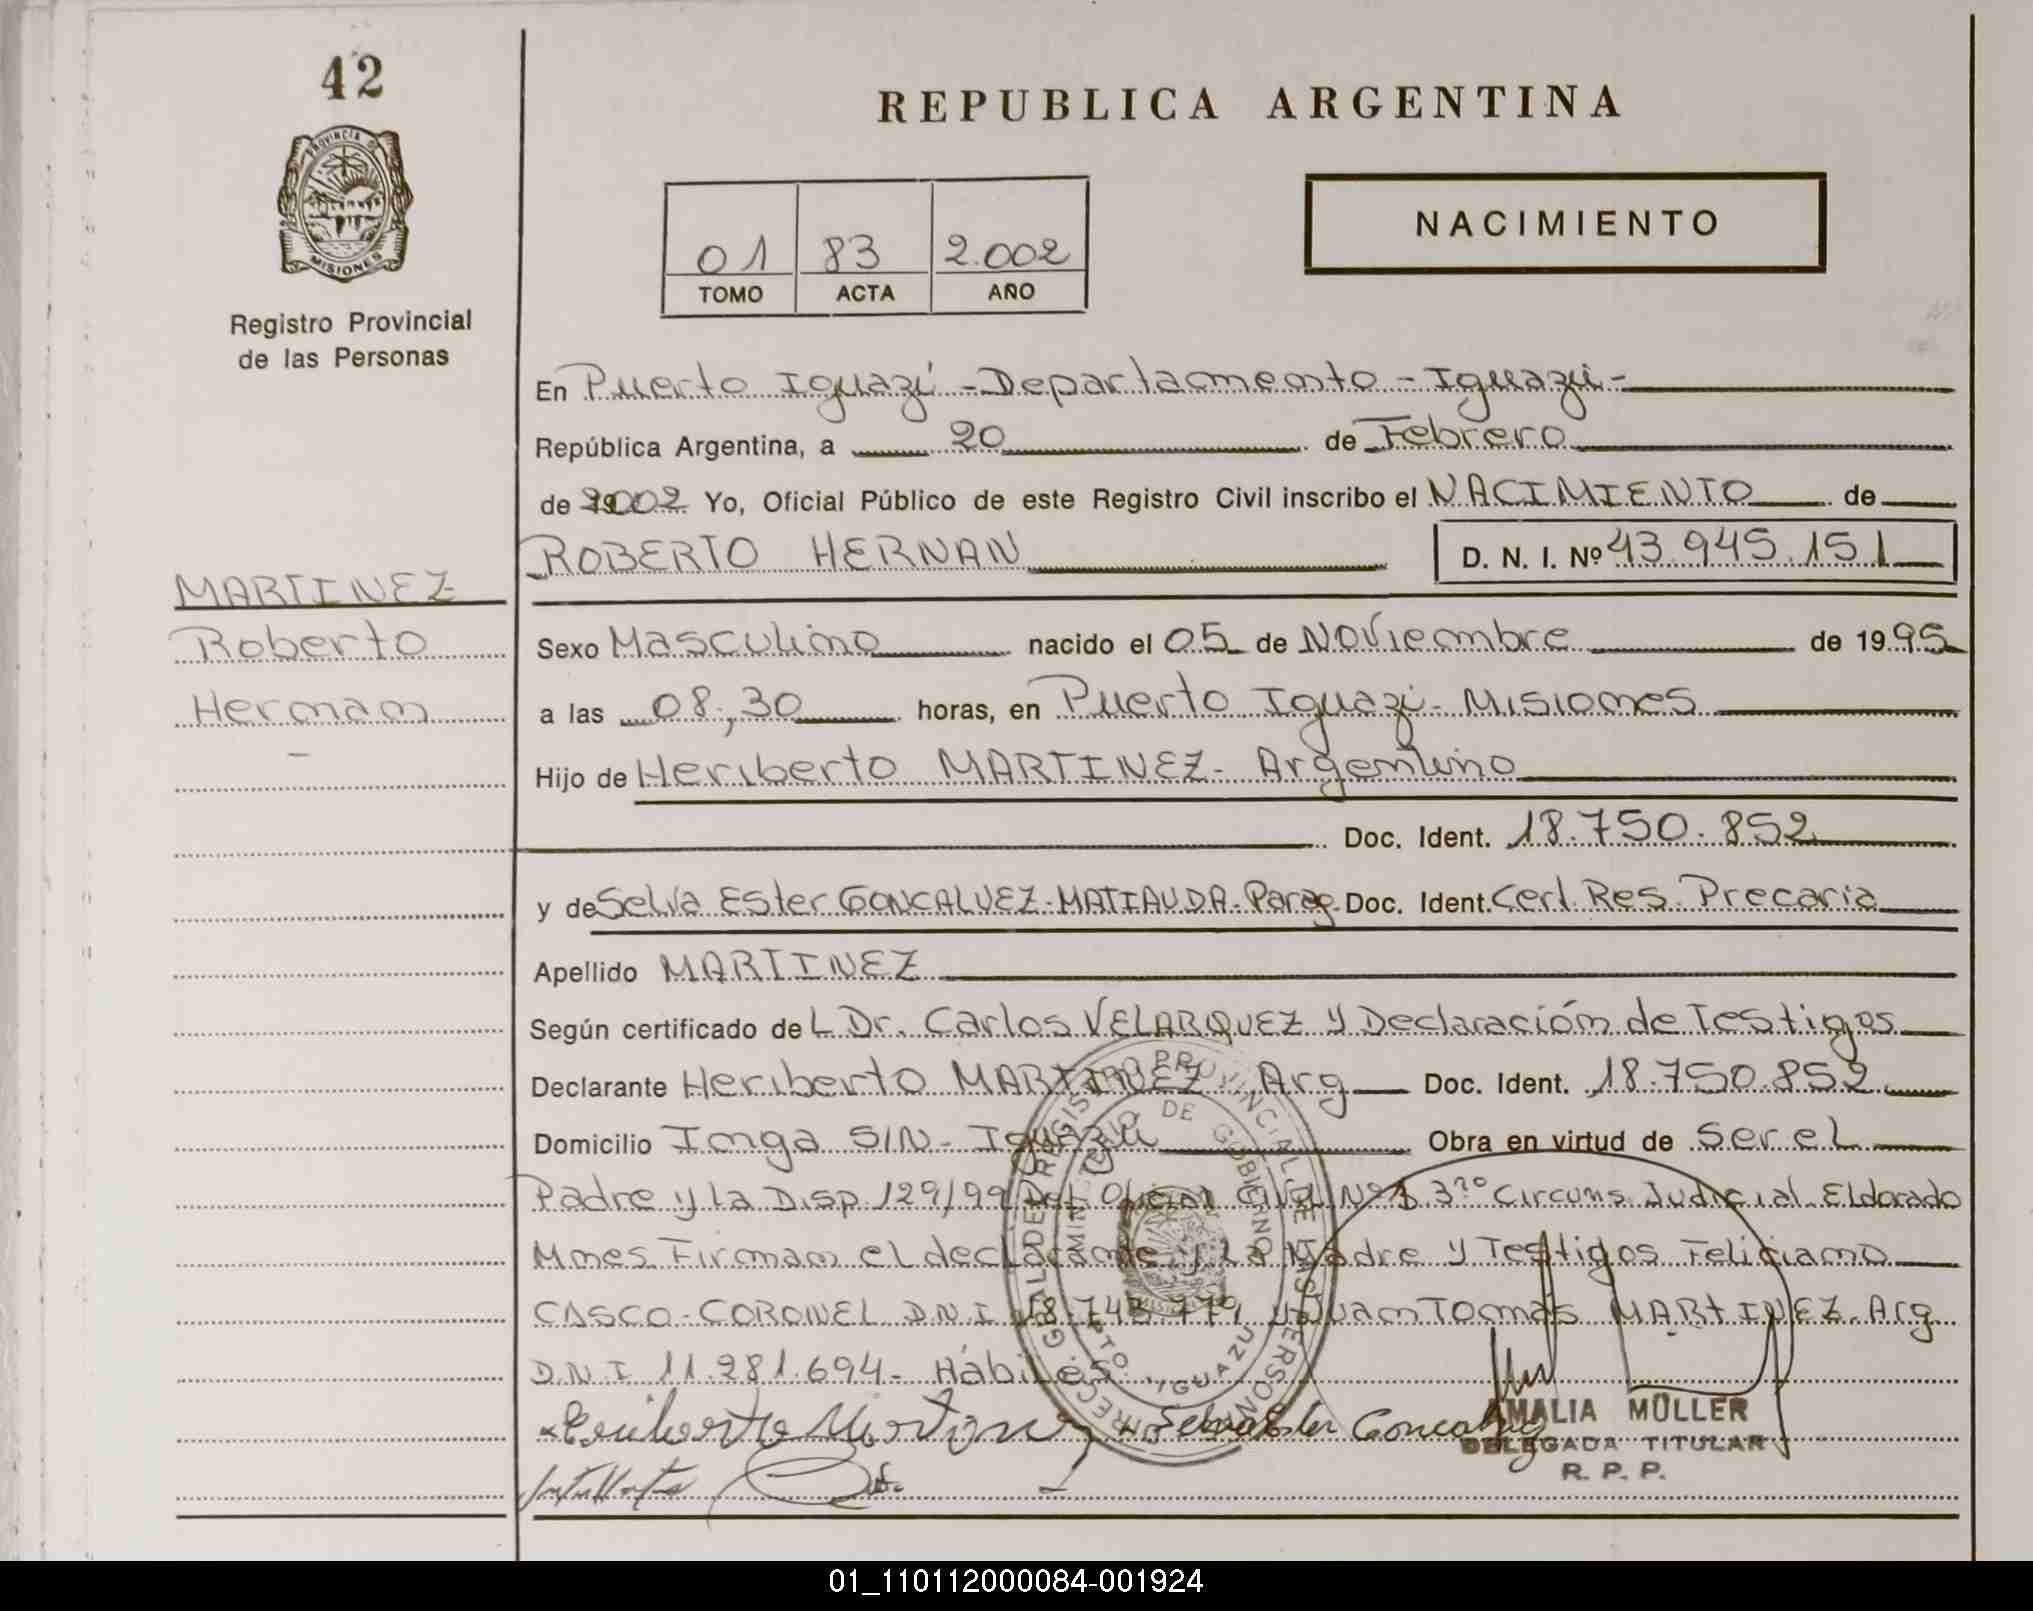 42
REPUBLICA ARGENTINA
PROVINCIA D
MISIONES
Registro Provincial
de las Personas
01 83 2.002
TOMO ACTA AÑO
NACIMIENTO
En Puerto Iguazú - Departamento - Iguazú -
República Argentina, a 20 de Febrero
de 2002 Yo, Oficial Público de este Registro Civil inscribo el NACIMIENTO de
ROBERTO HERNAN D. N. I. Nº 43.945.151
MARTINEZ
Roberto
Hernan
Sexo Masculino nacido el 05 de Noviembre de 1995
a las 08,30 horas, en Puerto Iguazú - Misiones
Hijo de Heriberto MARTINEZ - Argentino
Doc. Ident. 18.750.852
y de Selva Ester GONCALVEZ - MATIAUDA - Parag. Doc. Ident. Cert. Res. Precaria
Apellido MARTINEZ
Según certificado del Dr. Carlos VELARQUEZ y Declaración de Testigos
Declarante Heriberto MARTINEZ Arg Doc. Ident. 18.750.852
Domicilio Inga S/N - Iguazú Obra en virtud de ser el
Padre y la Disp. 129/99 Def. Oficial Civil Nº 1 3ra Circuns. Judicial Eldorado
Mnes. Firman el declarante y la Madre y Testigos Feliciano
CASCO - CORONEL D.N.I 18.743.779 y Juan Tomás MARTINEZ. Arg.
D.N.I 11.281.694 - Hábiles
Heriberto Martinez Selva Ester Goncalvez
AMALIA MÜLLER
DELEGADA TITULAR
R. P. P.
DIRECC. GRAL. DEL REGISTRO PROVINCIAL DE LAS PERSONAS
MINISTERIO DE GOBIERNO
PTO. IGUAZU
01_110112000084-001924